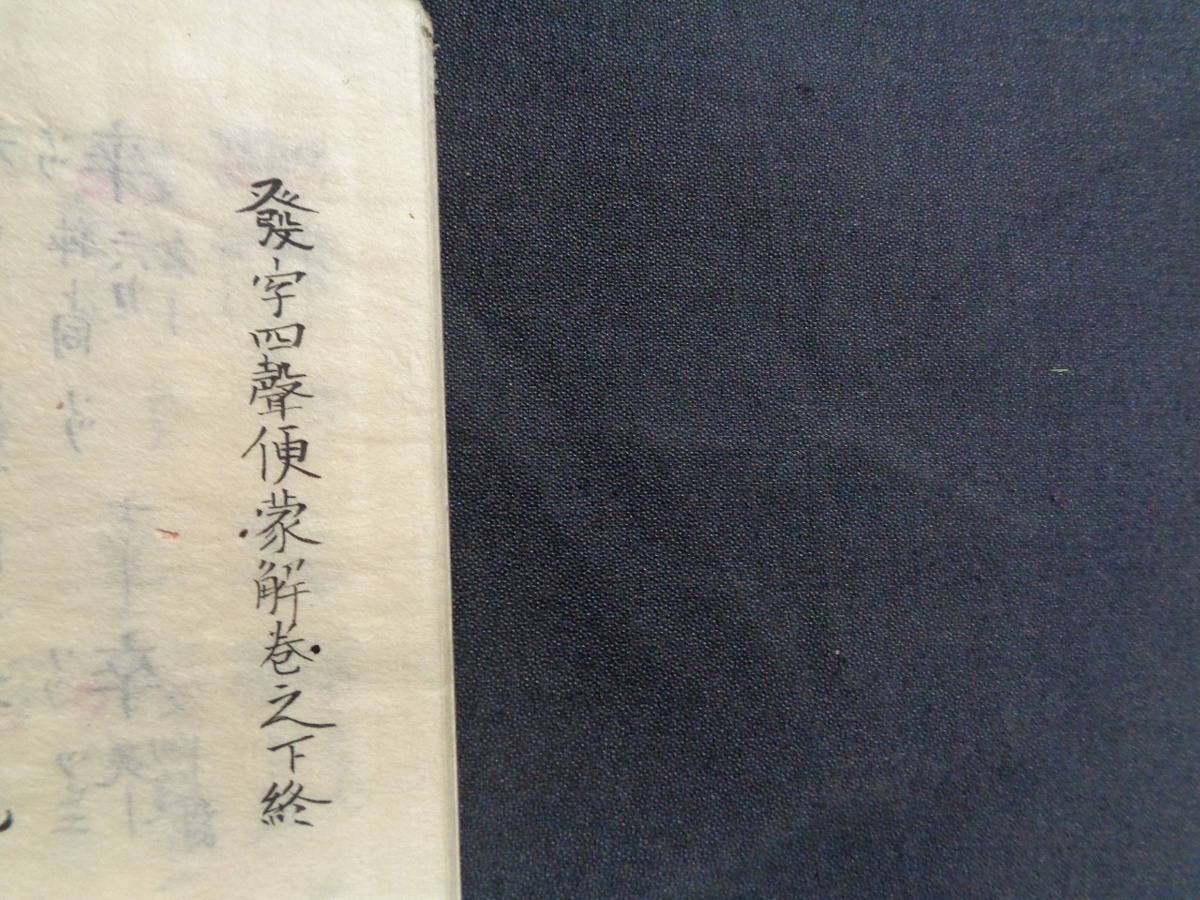 發字四聲便蒙解卷之下終